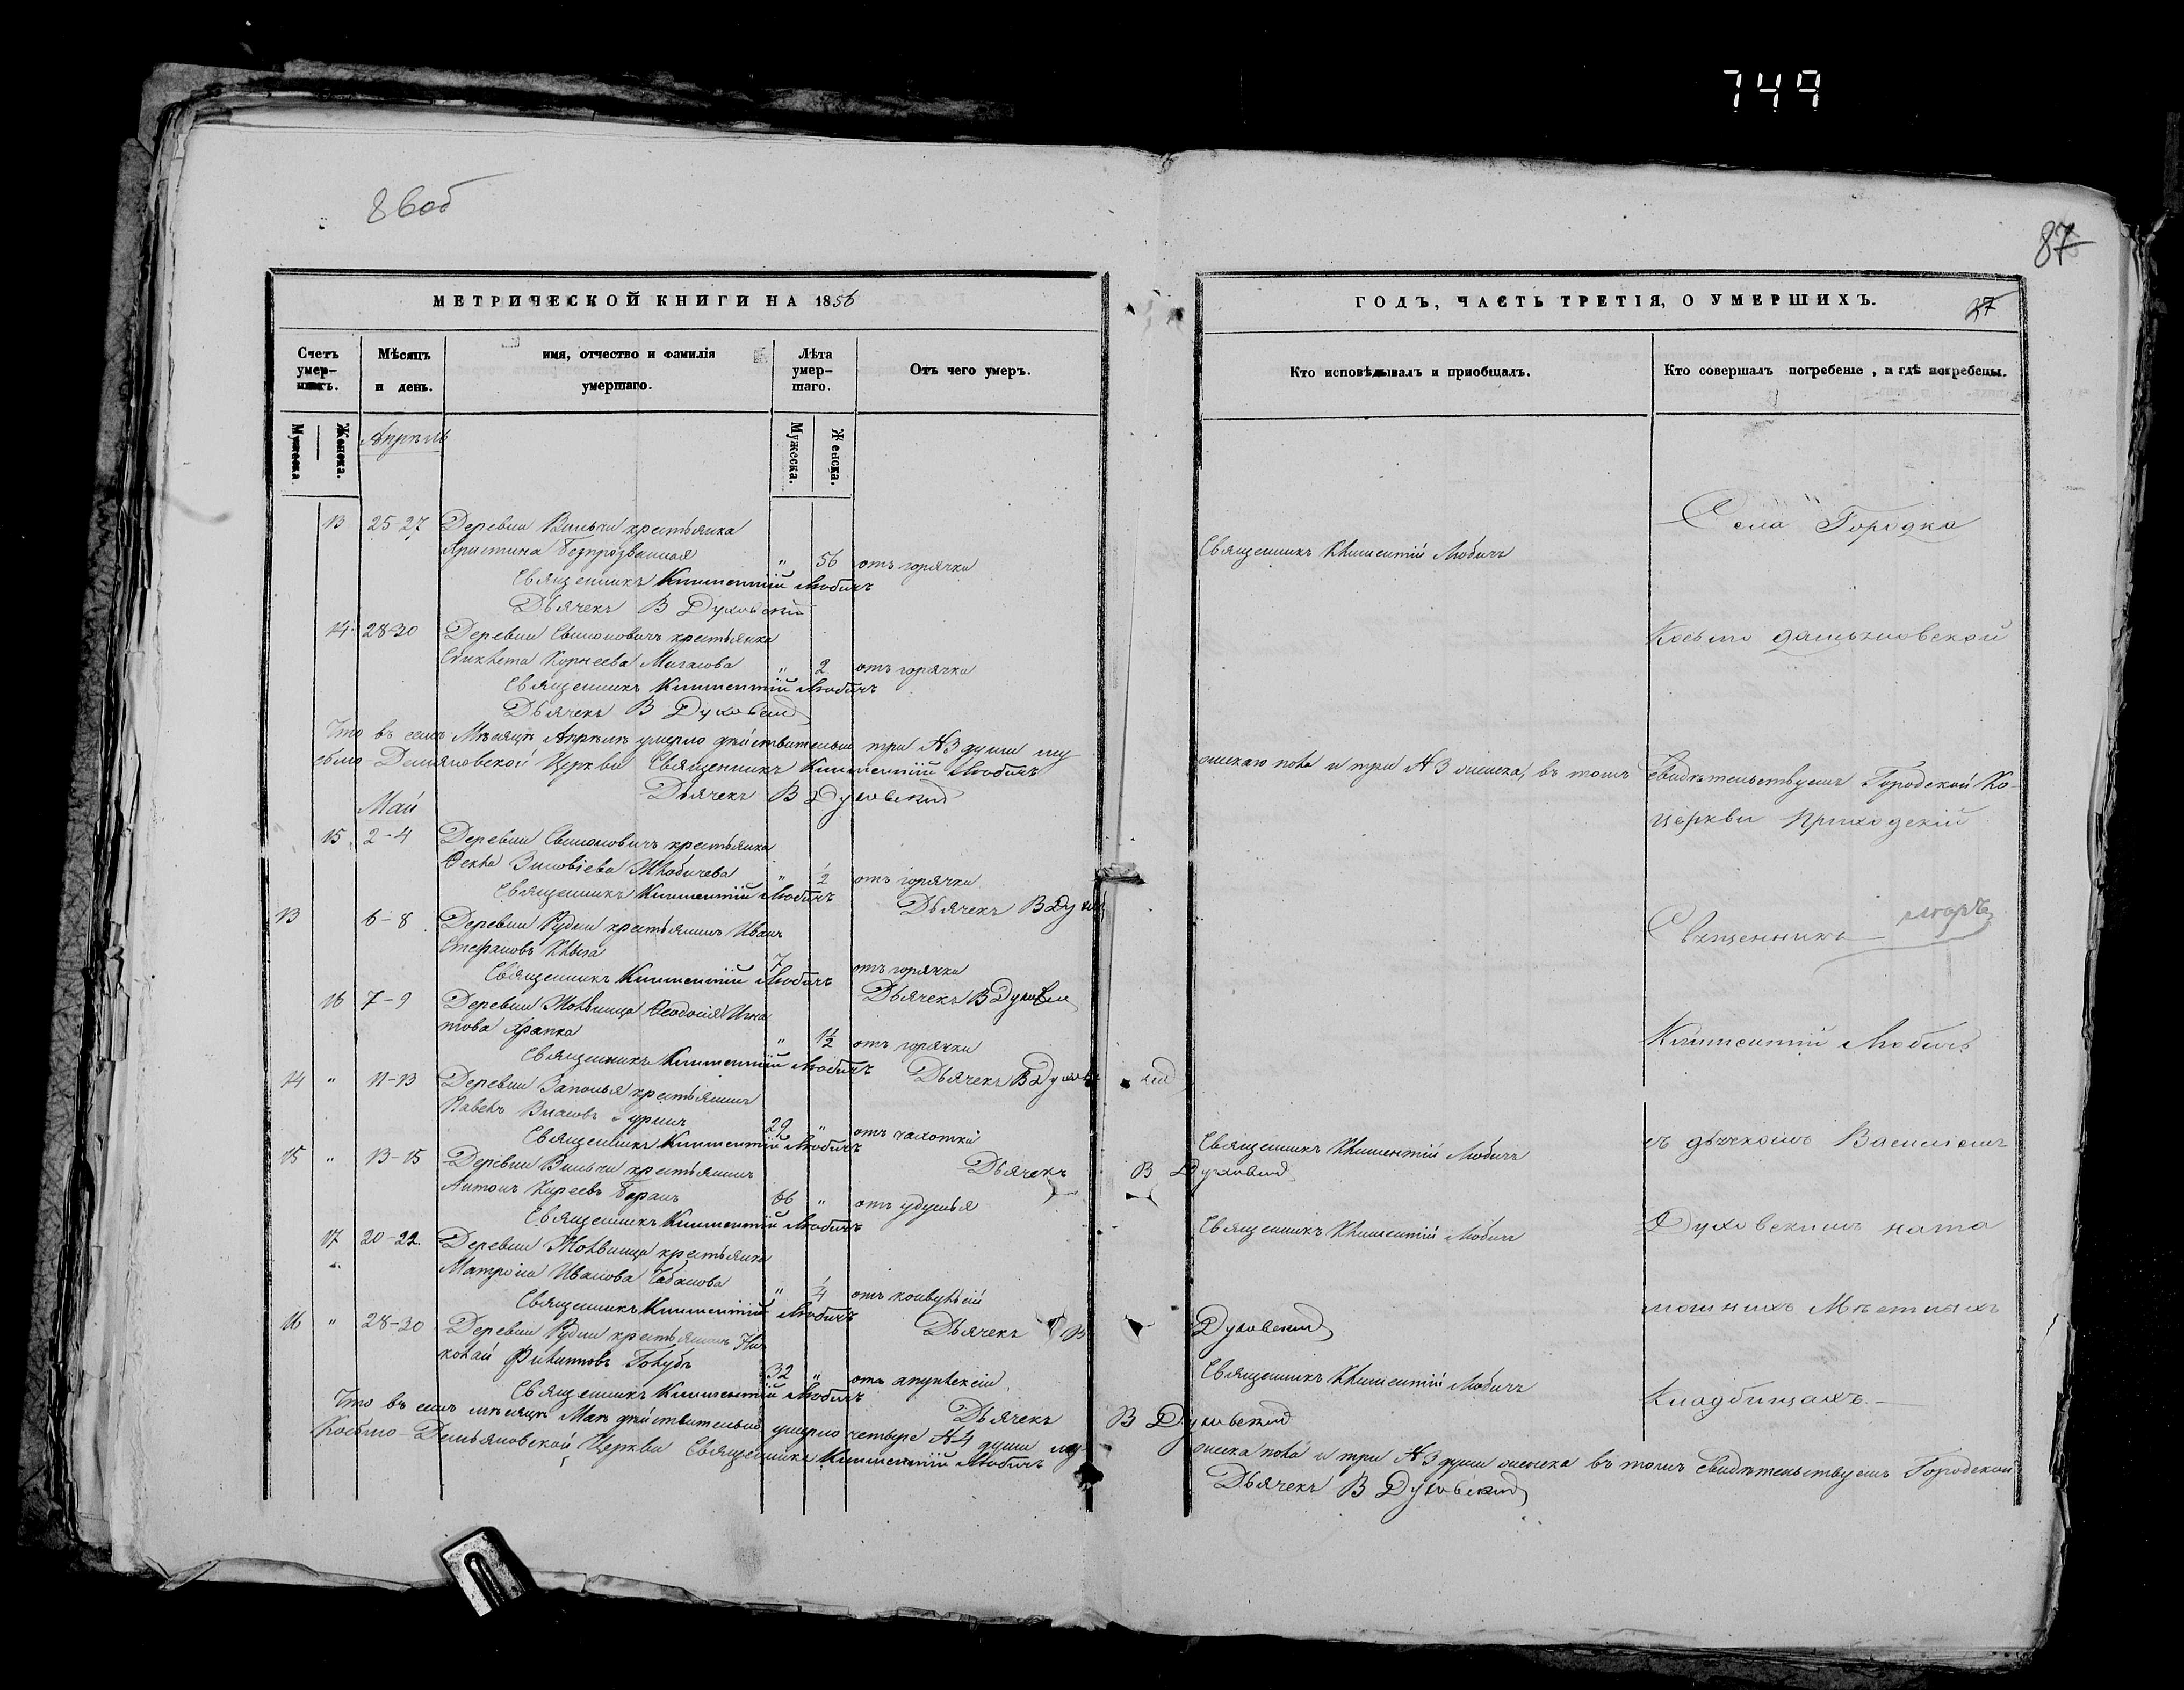 749
86об
87
МЕТРИЧЕСКОЙ КНИГИ НА 1856
Счетъ умершихъ.
Мѣсяцъ и день.
имя, отчество и фамилія умершаго.
Лѣта умершаго.
Отъ чего умеръ.
Мужеска
Женска.
Мужеска.
Женска.
Апрѣль
13 25-27 Деревни Вильчи крестьянка
Христина Безпрозванная " 56 отъ горячки
Священникъ Климентій Любичъ
Дьячекъ В Духовскій
14 28-30 Деревни Симоновичъ крестьянка
Корнеева " 2 отъ горячки
Священникъ Климентій Любичъ
Дьячекъ В Духовскій
Что въ семъ Мѣсяцѣ Апрѣлѣ умерло дѣйствительно три №3 души му
Демяновской Церкви Священникъ Климентій Любичъ
Дьячекъ В Духовскій
Май
15 2-4 Деревни Симоновичъ крестьянка
Ѳекла Зиновіева " 2 отъ горячки
Священникъ Климентій Любичъ Дьячекъ В Духов
13 6-8 Деревни Рудни крестьянинъ Иванъ
Стефановъ 7 отъ горячки
Священникъ Климентій Любичъ Дьячекъ В Духовскій
16 7-9 Деревни Ѳеодосія Игна
това Храпка " 1½ отъ горячки
Священникъ Климентій Любичъ Дьячекъ В Духовскій
14 " 11-13 Деревни Заполья крестьянинъ
Павелъ Власовъ Гуринъ 29 " отъ чахотки
Священникъ Климентій Любичъ
15 " 13-15 Деревни Вильчи крестьянинъ Дьячекъ В Духовскій
Антонъ Киреевъ Баранъ 66 " отъ удушья
Священникъ Климентій Любичъ
17 20-22 Деревни крестьянка
Матрона Иванова " ¼ отъ конвульсій
Священникъ Климентій Любичъ
16 " 28-30 Деревни Рудни крестьянинъ Ни Дьячекъ В Духовскій
колай Филиповъ Голубъ 32 " отъ апуплексіи
Священникъ Климентій Любичъ Дьячекъ В Духовскій
Что въ семъ мѣсяцѣ Маѣ дѣйствительно умерло четыре №4 души му
Косьмо-Демьяновской Церкви Священникъ Климентій Любичъ
ГОДЪ, ЧАСТЬ ТРЕТІЯ, О УМЕРШИХЪ.
27
Кто исповѣдывалъ и приобщалъ.
Кто совершалъ погребеніе, и гдѣ погребены.
Села Городка
Священникъ Климентій Любичъ
Косьмо дамьяновской
жскаго пола и три №3 женска, въ томъ свидѣтельствуемъ Городской Ко
церкви Приходскій
Священникъ
Климентій Любичъ
Священникъ Климентій Любичъ
съ дьячкомъ Василіемъ
Священникъ Климентій Любичъ
Духовскимъ на
Мѣстныхъ
Священникъ Климентій Любичъ
Кладбищахъ.
жска пола и три №3 души женска въ томъ свидѣтельствуемъ Городской
Дьячекъ В Духовскій